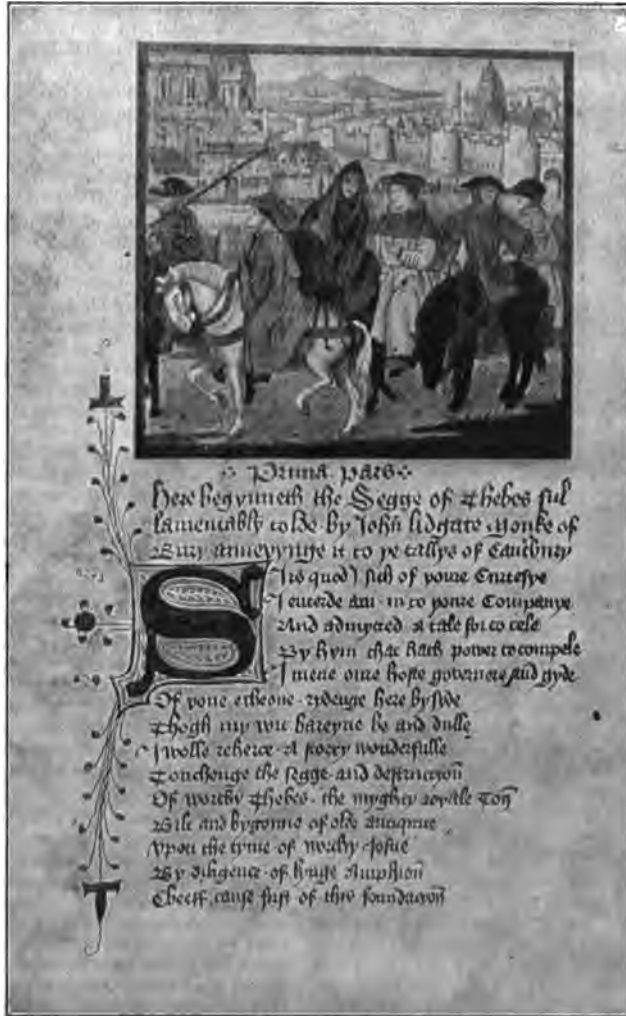 Prima pars
here begynneth the Segge of Thebes ful
lamentably tolde by John lidgate Monke of
Bury annexynge it to þe tallys of Cauntbury
Sirs quod I sith of youre Curtesye
I entrede am in to youre Companye
And admytted a tale for to tele
By hym that hath power to compele
I mene oure hoste governere and gyde
Of yone echeone rydenge here bysyde
Thogh my wit bareyne be and dulle
I wolle reherce a story wonderfulle
Touchenge the segge and destruccyon
Of worthy Thebes the myghty royale Ton
Bilt and bygonne of olde antiquite
Upon the tyme of worthy Josue
By diligence of kynge Amphion
Cheeff cause first of this foundacyon